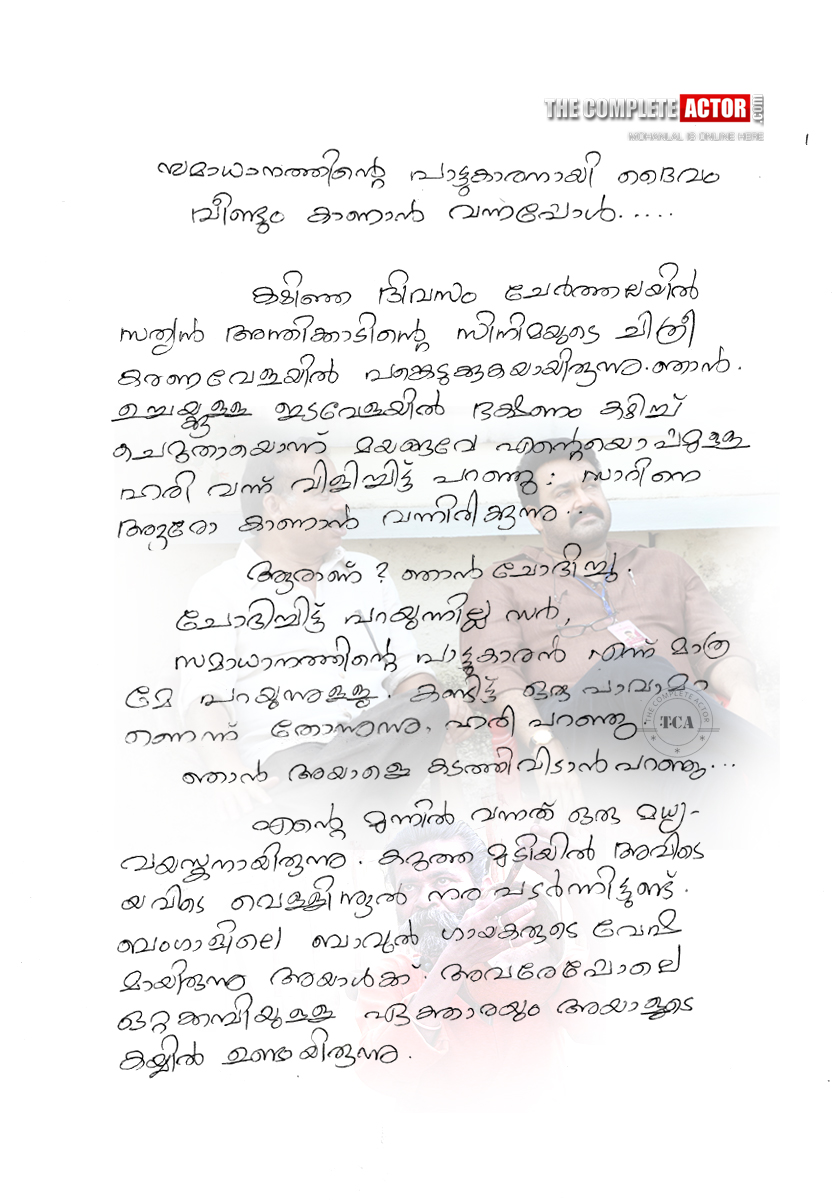 THE COMPLETE ACTOR .COM
MOHANLAL IS ONLINE HERE
1
സമാധാനത്തിന്റെ പാട്ടുകാരനായി ദൈവം
വീണ്ടും കാണാൻ വന്നപ്പോൾ.....
കഴിഞ്ഞ ദിവസം ചേർത്തലയിൽ
സത്യൻ അന്തിക്കാടിന്റെ സിനിമയുടെ ചിത്രീ
കരണവേളയിൽ പങ്കെടുക്കുകയായിരുന്നു.ഞാൻ.
ഉച്ചയ്ക്കുള്ള ഇടവേളയിൽ ഭക്ഷണം കഴിച്ച്
ചെറുതായൊന്ന് മയങ്ങവേ എന്റെയൊപ്പമുള്ള
ഹരി വന്ന് വിളിച്ചിട്ട് പറഞ്ഞു: സാറിനെ
ആരോ കാണാൻ വന്നിരിക്കുന്നു..
ആരാണ്? ഞാൻ ചോദിച്ചു.
ചോദിച്ചിട്ട് പറയുന്നില്ല സർ,
സമാധാനത്തിന്റെ പാട്ടുകാരൻ എന്ന് മാത്ര
മേ പറയുന്നുള്ളൂ. കണ്ടിട്ട് ഒരു പാവമാ
ണെന്ന് തോന്നുന്നു, ഹരി പറഞ്ഞു
THE COMPLETE ACTOR
TCA
ഞാൻ അയാളെ കടത്തിവിടാൻ പറഞ്ഞു...
എന്റെ മുന്നിൽ വന്നത് ഒരു മധ്യ-
വയസ്കനായിരുന്നു. കറുത്ത മുടിയിൽ അവിടെ
യവിടെ വെള്ളിനൂൽ നര പടർന്നിട്ടുണ്ട്.
ബംഗാളിലെ ബാവുൽ ഗായകരുടെ വേഷ
മായിരുന്നു അയാൾക്ക്. അവരേപ്പോലെ
ഒറ്റക്കമ്പിയുള്ള ഏക്താരയും അയാളുടെ
കയ്യിൽ ഉണ്ടായിരുന്നു.